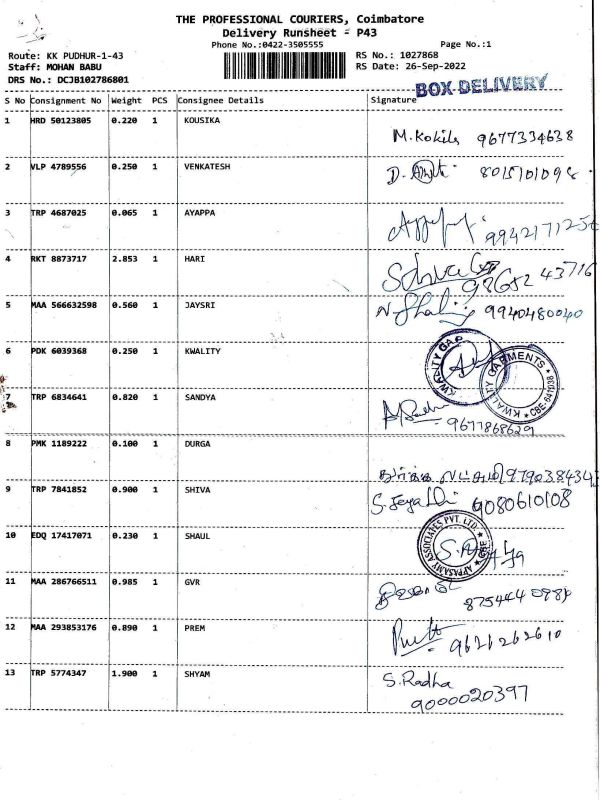 THE PROFESSIONAL COURIERS, Coimbatore
Delivery Runsheet - P43
Phone No.:0422-3505555 Page No.:1
Route: KK PUDHUR-1-43 RS No.: 1027868
Staff: MOHAN BABU RS Date: 26-Sep-2022
DRS No.: DCJB102786801
BOX DELIVERY
S No Consignment No Weight PCS Consignee Details Signature
1 HRD 50123805 0.220 1 KOUSIKA
M.Kokila 9677334638
2 VLP 4789556 0.250 1 VENKATESH
D. 8015101098
3 TRP 4687025 0.065 1 AYAPPA
9942171256
4 RKT 8873717 2.853 1 HARI
98652 43716
5 MAA 566632598 0.560 1 JAYSRI
9940480040
6 PDK 6039368 0.250 1 KWALITY
KWALITY GAP
KWALITY GARMENTS * CBE-641038 *
7 TRP 6834641 0.820 1 SANDYA
9677868629
8 PMK 1189222 0.100 1 DURGA
9790384343
9 TRP 7841852 0.900 1 SHIVA
9080610108
10 EDQ 17417071 0.230 1 SHAUL
APPASAMY ASSOCIATES PVT. LTD. * CBE *
11 MAA 286766511 0.985 1 GVR
12 MAA 293853176 0.890 1 PREM
9626262610
13 TRP 5774347 1.900 1 SHYAM
S.Radha
9000020397